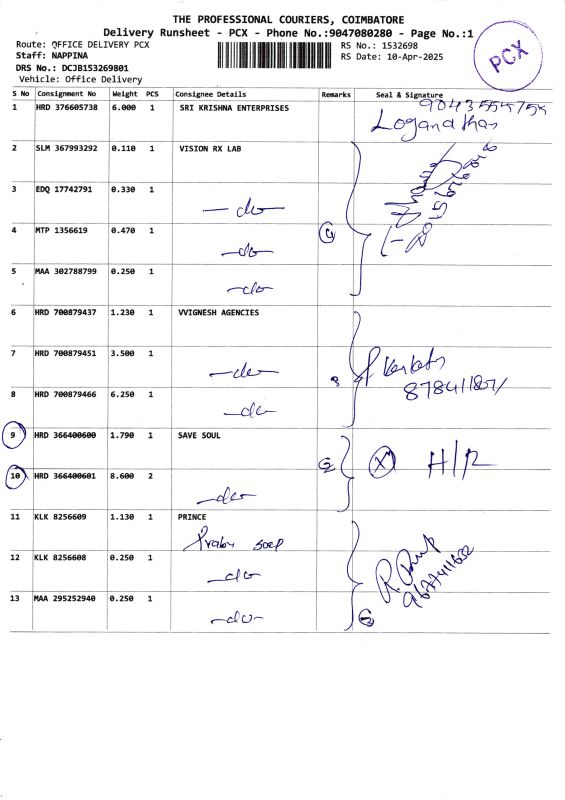 THE PROFESSIONAL COURIERS, COIMBATORE
Delivery Runsheet - PCX - Phone No.:9047080280 - Page No.:1
Route: OFFICE DELIVERY PCX
Staff: NAPPINA
DRS No.: DCJB153269801
Vehicle: Office Delivery
RS No.: 1532698
RS Date: 10-Apr-2025
PCX
S No Consignment No Weight PCS Consignee Details Remarks Seal & Signature
1 HRD 376605738 6.000 1 SRI KRISHNA ENTERPRISES
Loganathan
2 SLM 367993292 0.110 1 VISION RX LAB
3 EDQ 17742791 0.330 1
-do-
4 MTP 1356619 0.470 1 4
-do-
5 MAA 302788799 0.250 1
-do-
6 HRD 700879437 1.230 1 VVIGNESH AGENCIES
7 HRD 700879451 3.500 1
-do- 3
8 HRD 700879466 6.250 1
-do-
9 HRD 366400600 1.790 1 SAVE SOUL
2 X H/R
10 HRD 366400601 8.600 2
-do-
11 KLK 8256609 1.130 1 PRINCE
12 KLK 8256608 0.250 1
-do-
9677411632
13 MAA 295252940 0.250 1
-do- 3